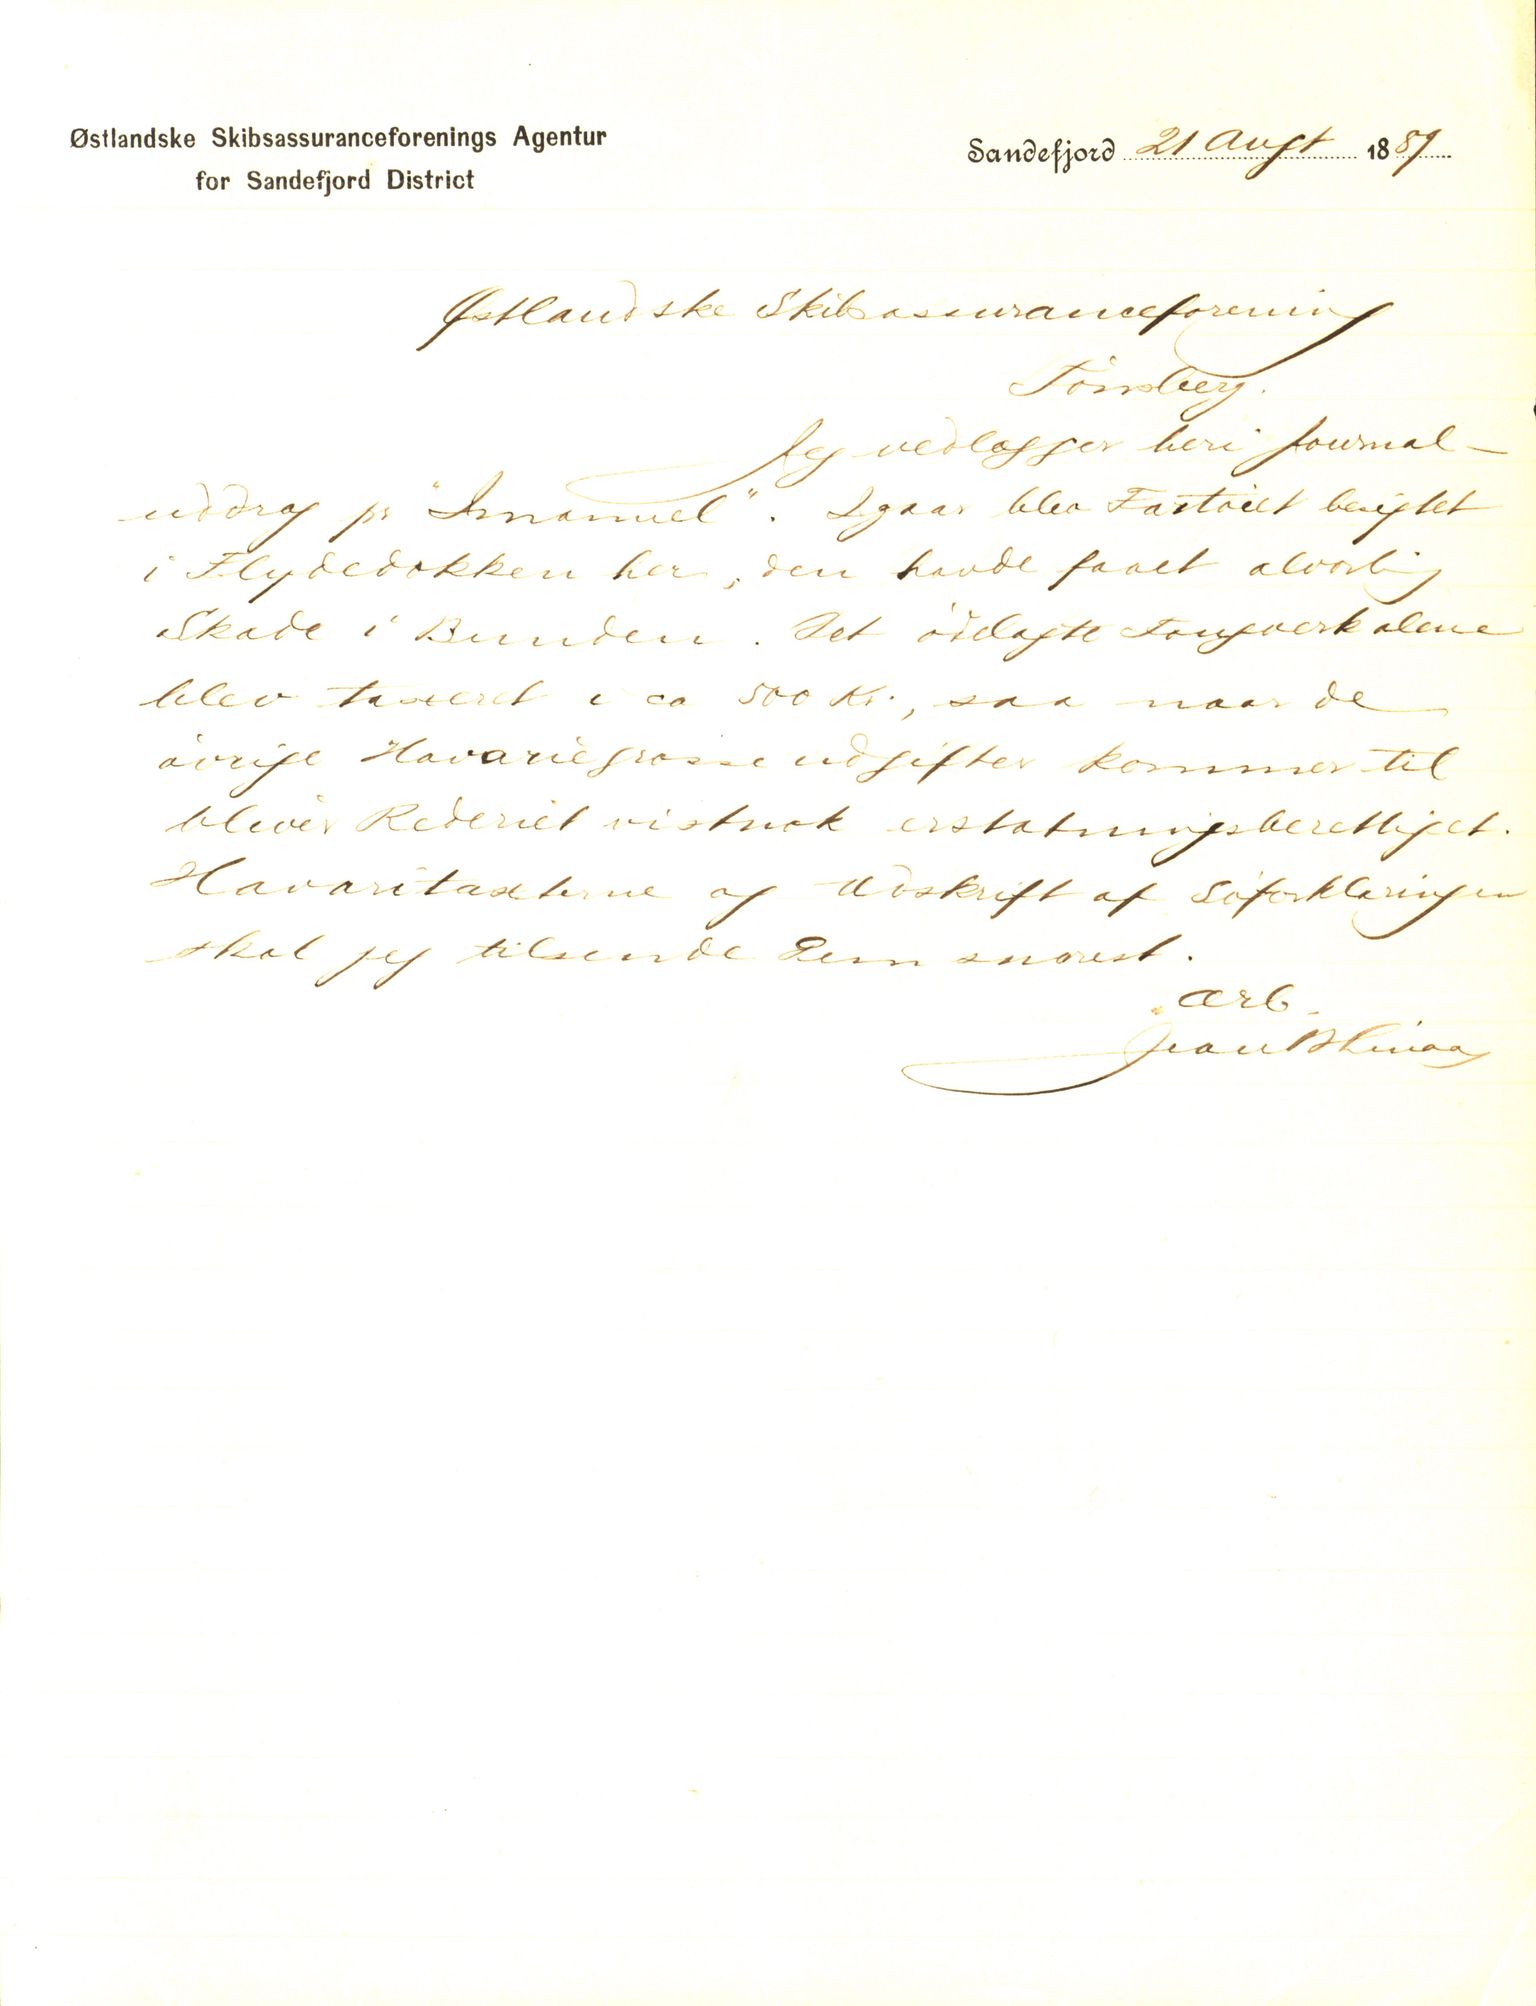 Østlandske Skibsassuranceforenings Agentur
for Sandefjord District
Sandefjord 21 Augt 1889
Østlandske Skibsassuranceforening
Tönsberg.
Jeg vedlægger heri Journal-
uddrag pr "Imanuel". Igaar blev Fartöiet besigtet
i Flydedokken her, den havde faaet alvorlig
Skade i Bunden. Det ödelagte Tougverk alene
blev taxeret i ca 500 Kr., saa naar de
övrige Havariegrosse udgifter kommer til
bliver Rederiet vistnok erstatningsberettiget.
Havaritaxterne og Udskrift af Söforklaringen
skal jeg tilsende Dem snarest.
Ærb.